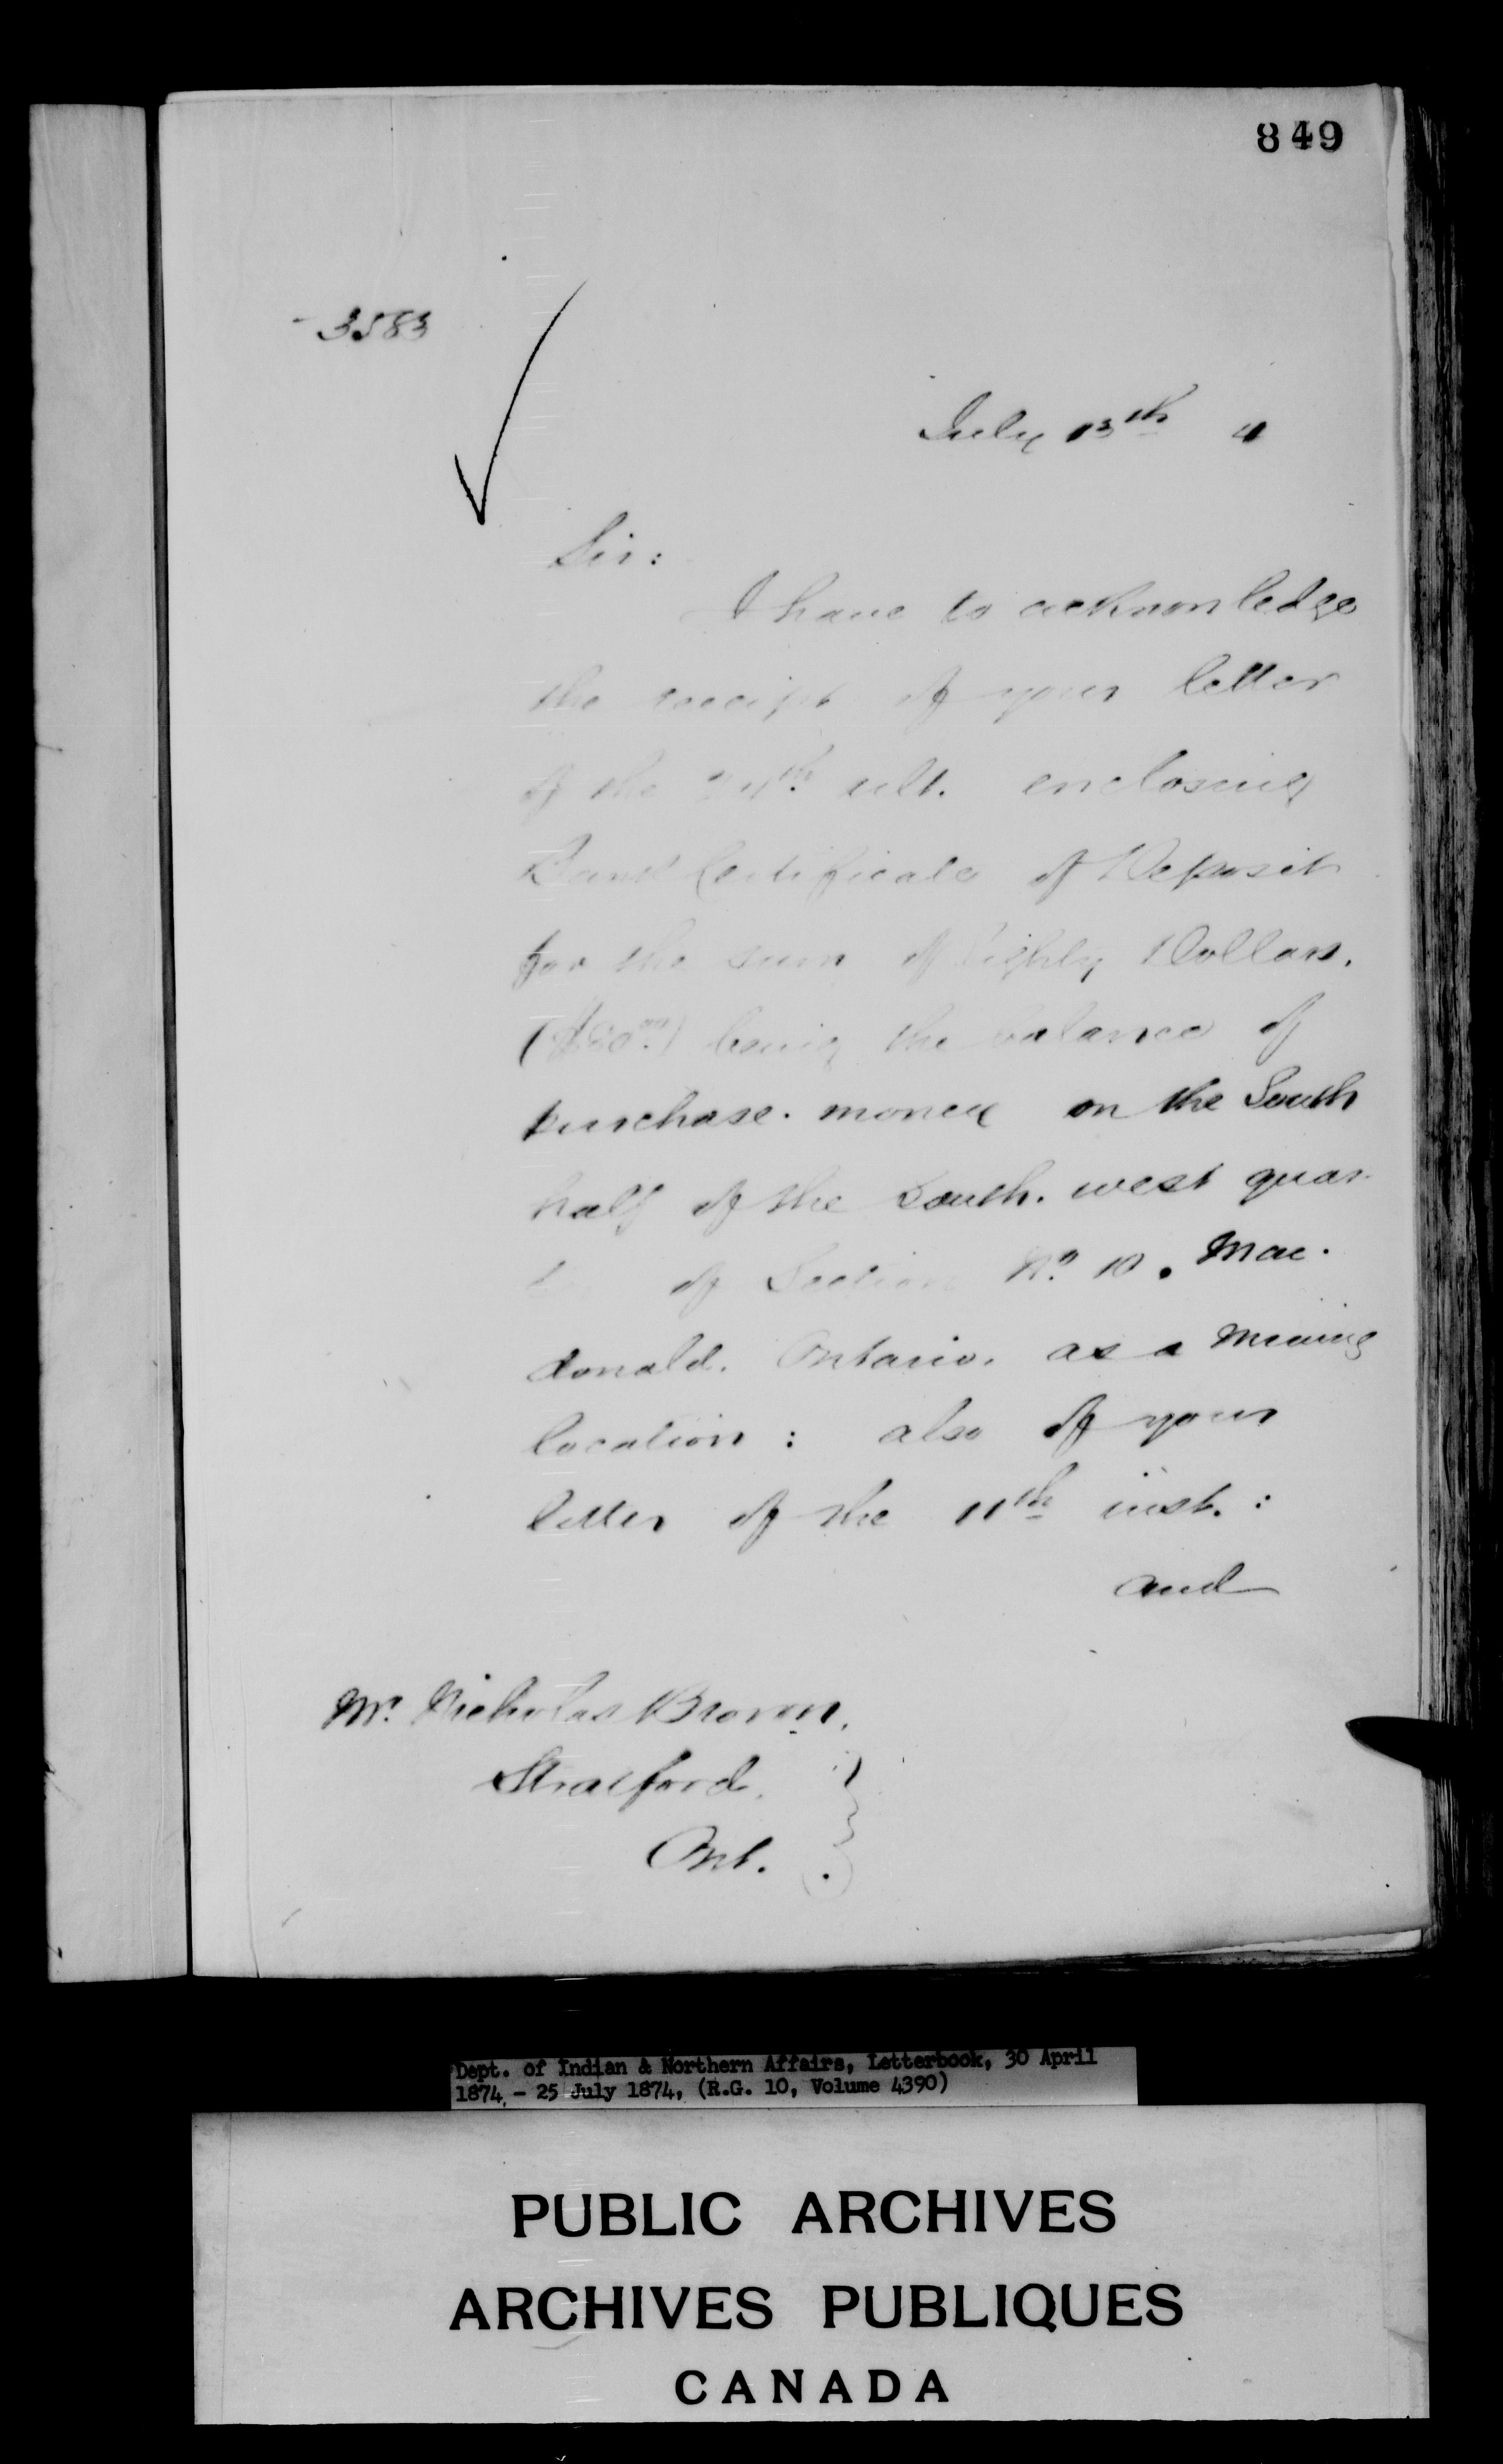 849
3583
July 13th 4
Sir:
I have to acknowledge
the receipt of your letter
of the 24th ult. enclosing
Bank Certificate of Deposit
for the sum of Eighty Dollars.
($80.00) being the balance of
purchase money on the South
half of the South. west quar-
of Section No. 10. Mac-
donald. Ontario. as a Mining
location: also of your
letter of the 11th inst.:
and
Mr. Nicholas Brown.
Stratford.
Ont.
Dept. of Indian & Northern Affairs, Letterbook, 30 April
1874 - 25 July 1874, (R.G. 10, Volume 4390)
PUBLIC ARCHIVES
ARCHIVES PUBLIQUES
CANADA